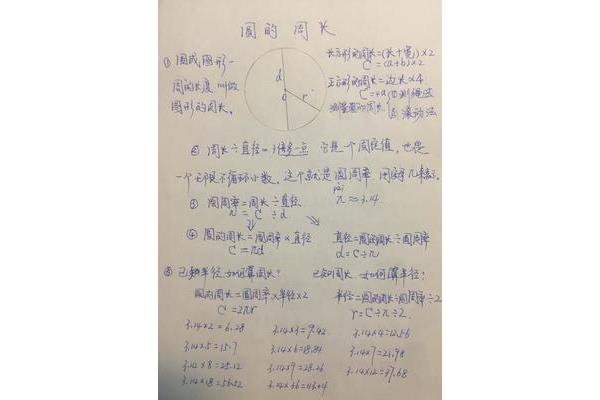 圆的周长
① 围成图形一
周的长度叫做
图形的周长。
d
o
r
长方形的周长=(长+宽)×2
C=(a+b)×2
正方形的周长=边长×4
C=4a
①测绳法
测量圆的周长
②滚动法
② 周长÷直径=3倍多一点 它是一个固定值,也是
一个无限不循环小数,这个就是圆周率 用字母π来表示。
pài
π≈3.14
③ 圆周率=周长÷直径
π = C ÷ d
④ 圆的周长=圆周率×直径 直径=圆的周长÷圆周率
C=πd d=C÷π
⑤ 已知半径 如何算周长? 已知周长 如何算半径?
圆的周长=圆周率×半径×2 半径=圆的周长÷圆周率÷2
C=2πr r=C÷π÷2
3.14×2=6.28 3.14×3=9.42 3.14×4=12.56
3.14×5=15.7 3.14×6=18.84 3.14×7=21.98
3.14×8=25.12 3.14×9=28.26 3.14×12=37.68
3.14×18=56.52 3.14×36=113.04